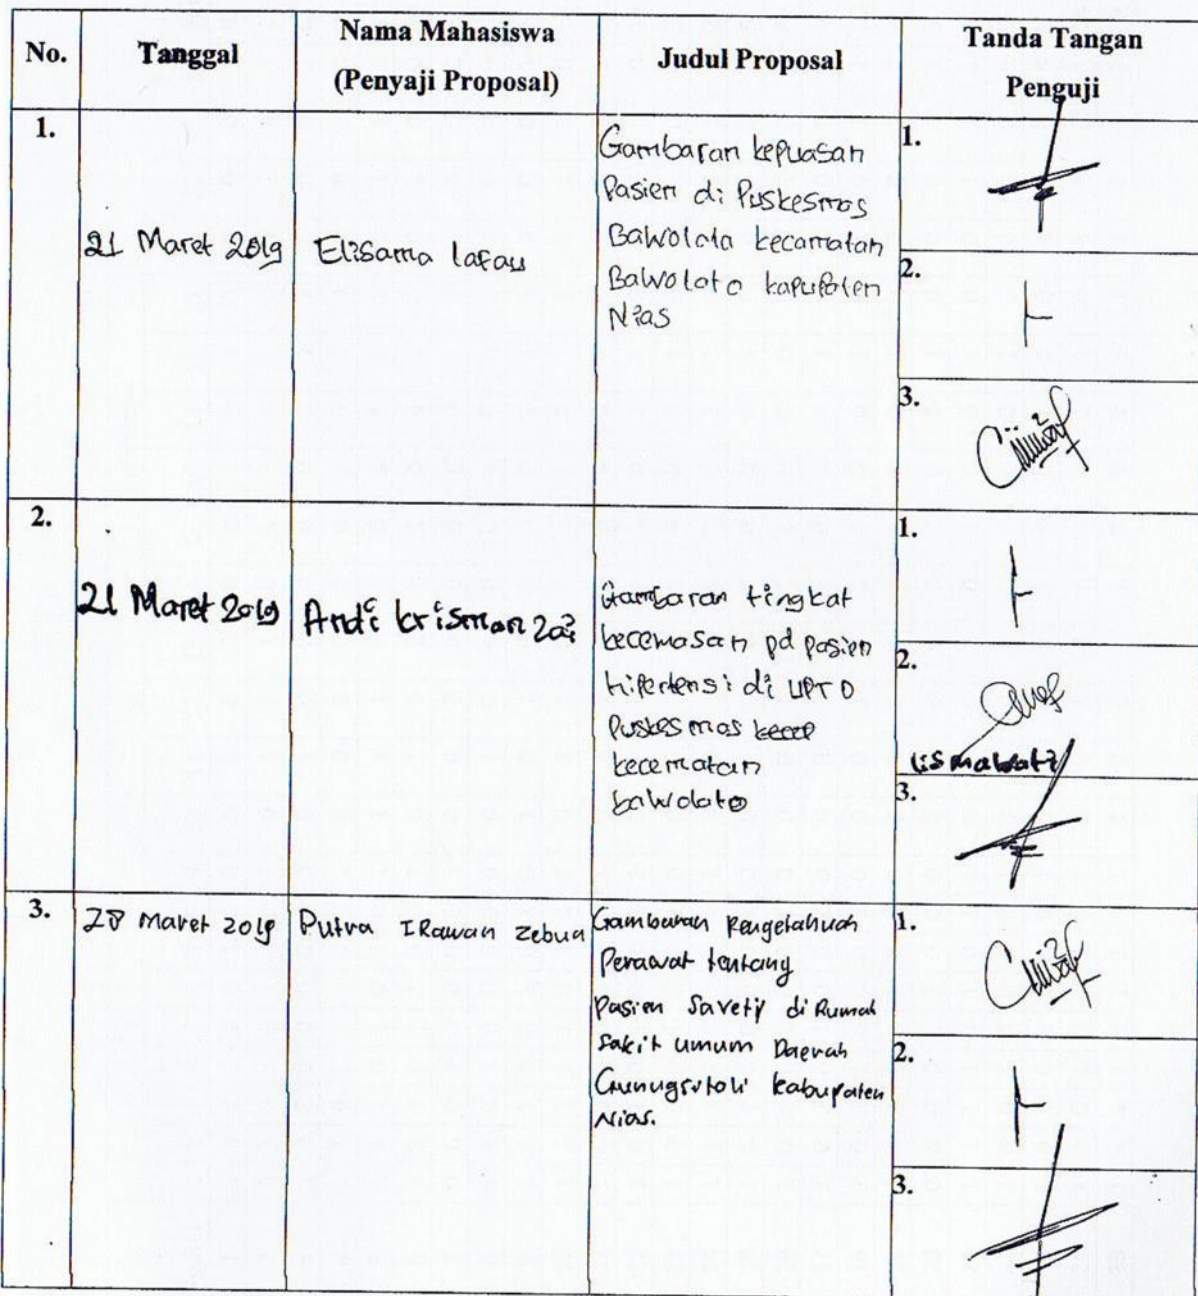 No. Tanggal Nama Mahasiswa (Penyaji Proposal) Judul Proposal Tanda Tangan Penguji
1.
21 Maret 2019
Elisama lafau
Gambaran kepuasan
Pasien di Puskesmas
Bawolato kecamatan
Bawolato kabupaten
Nias
1.
2.
3.
2.
21 Maret 2019
Andi krisman zai
Gambaran tingkat
kecemasan pd pasien
hipertensi di UPTD
Puskesmas
kecematan
bawolato
1.
2.
lismawati
3.
3.
28 Maret 2019
Putra IRawan Zebua
Gambaran Pengetahuan
Perawat tentang
Pasien Savety di Rumah
Sakit umum Daerah
Gunugsitoli kabupaten
Nias.
1.
2.
3.